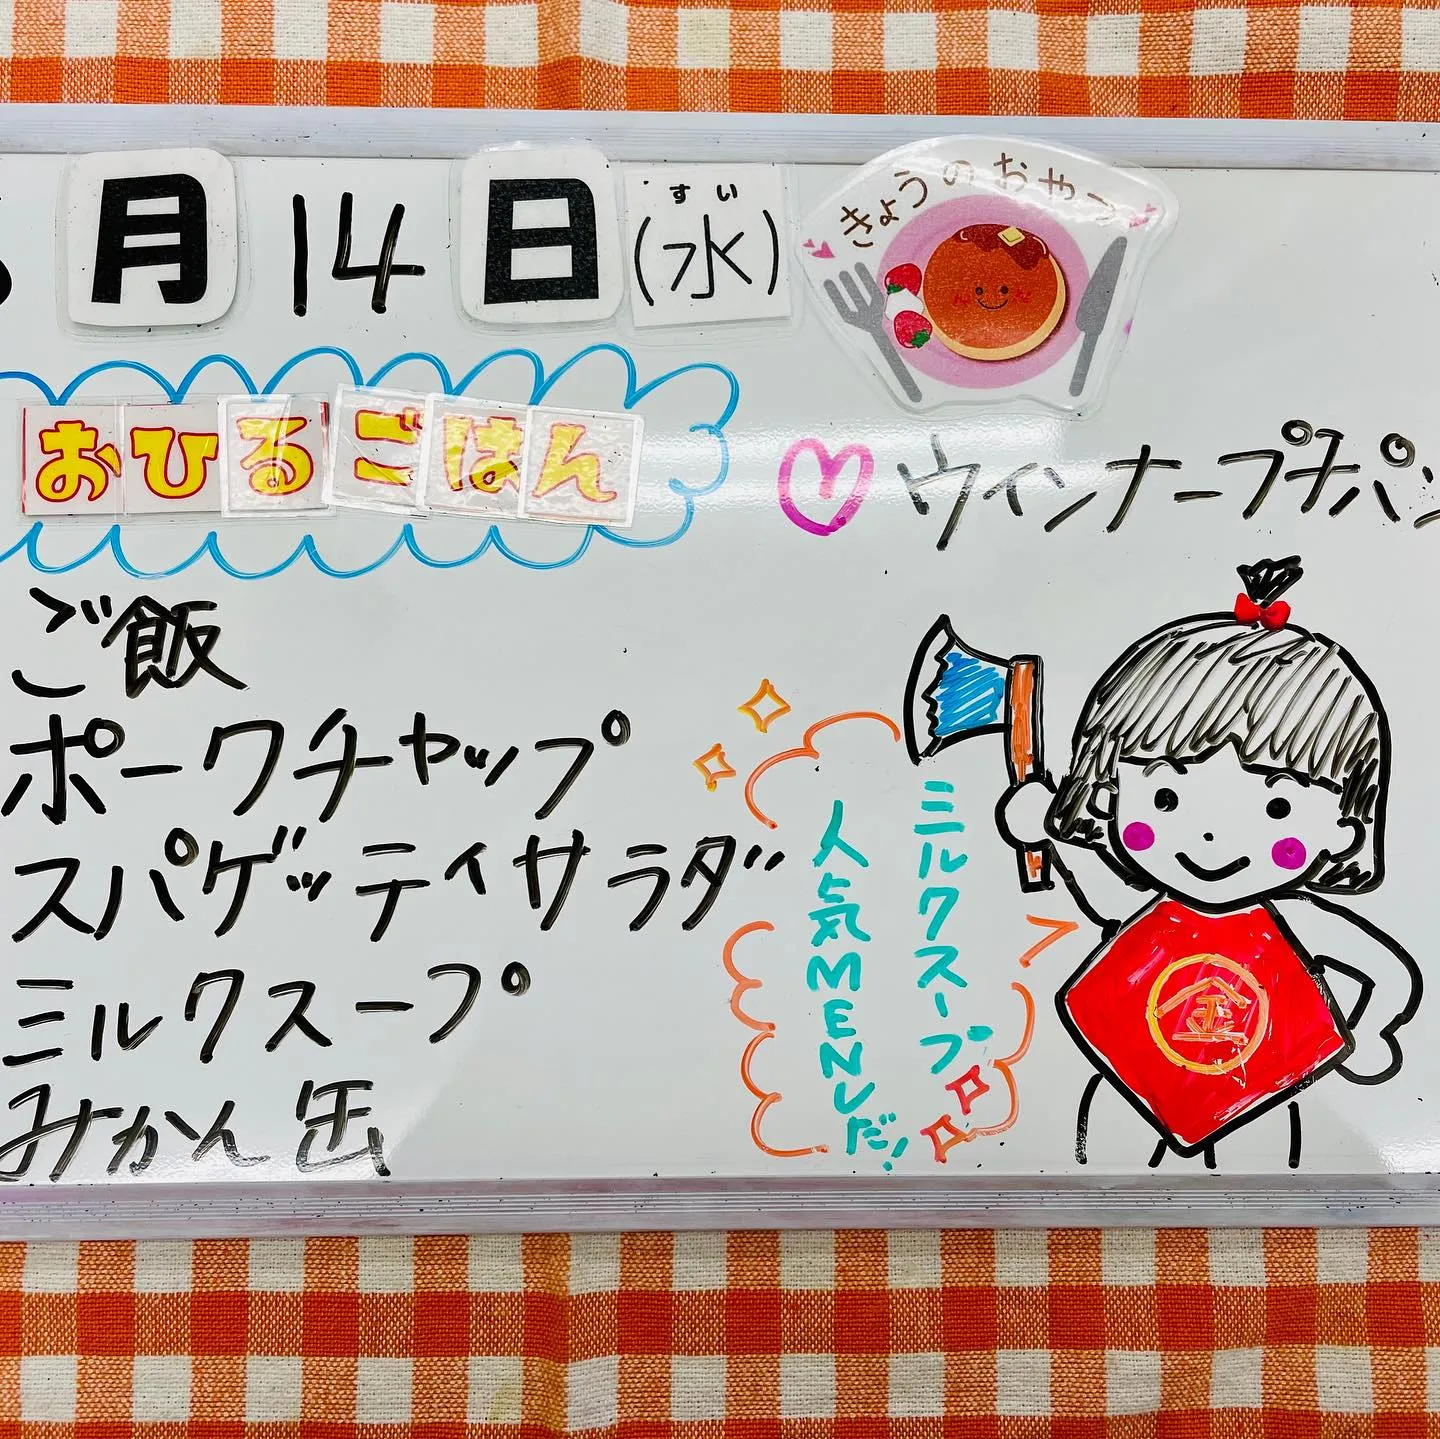 月14日(水)
すい
きょうのおやつ
おひるごはん
ウィンナープチパン
ご飯
ポークチャップ
スパゲッティサラダ
ミルクスープ
みかん缶
ミルクスープ
人気MENUだ!
金